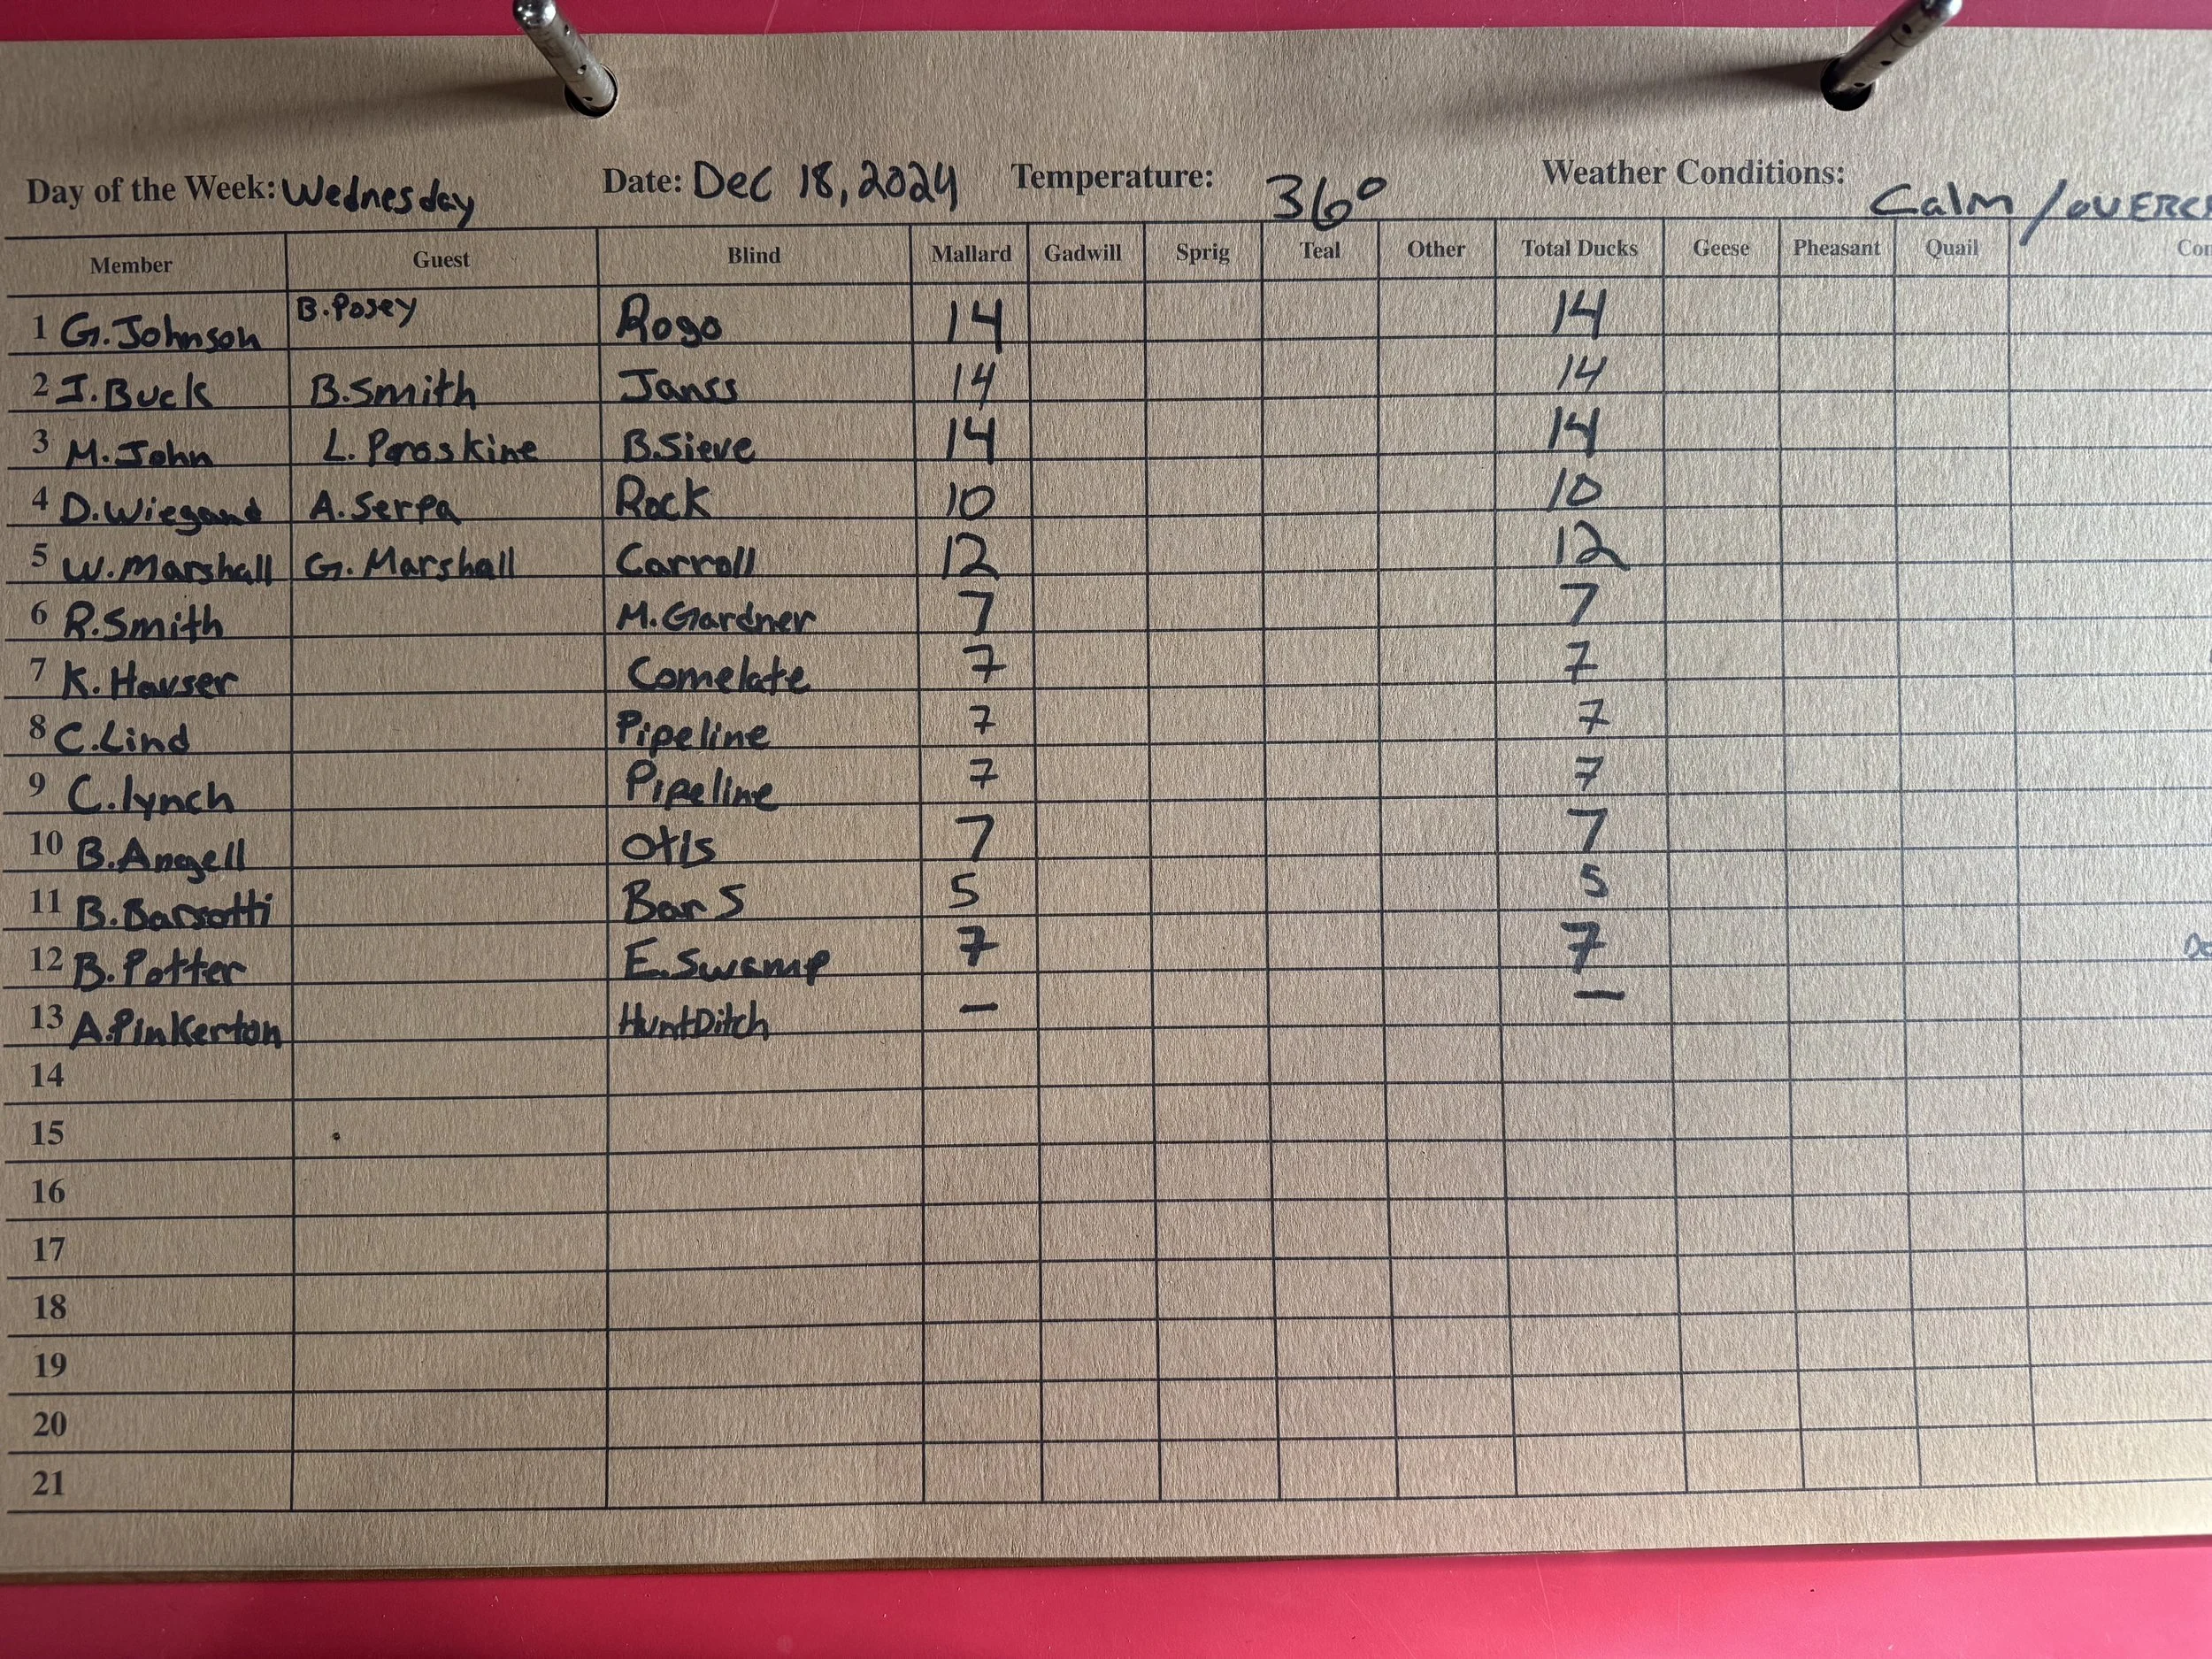 Day of the Week: Wednesday Date: Dec 18, 2024 Temperature: 36° Weather Conditions: Calm / OVERC
Member Guest Blind Mallard Gadwill Sprig Teal Other Total Ducks Geese Pheasant Quail Co
1 G. Johnson B. Posey Rogo 14 14
2 J. Buck B. Smith Janss 14 14
3 M. John L. Paraskine B. Sieve 14 14
4 D. Wiegand A. Serpa Rock 10 10
5 W. Marshall G. Marshall Carroll 12 12
6 R. Smith M. Gardner 7 7
7 K. Hauser Comelate 7 7
8 C. Lind Pipeline 7 7
9 C. lynch Pipeline 7 7
10 B. Angell Otis 7 7
11 B. Barsotti Bar S 5 5
12 B. Potter E. Swamp 7 7
13 A. Pinkerton Hunt Ditch — —
14
15
16
17
18
19
20
21